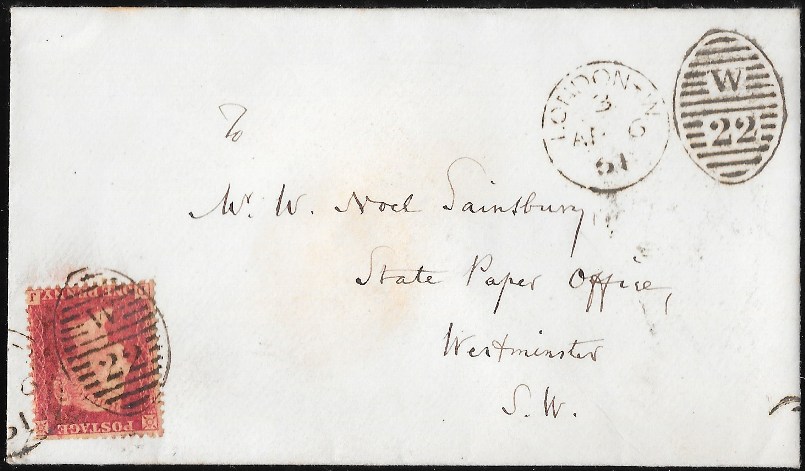 To
Mr. W. Noel Sainsbury
State Paper Office,
Westminster
S.W.
LONDON-W
3
AP 6
61
W
22
W
22
ONE PENNY
POSTAGE